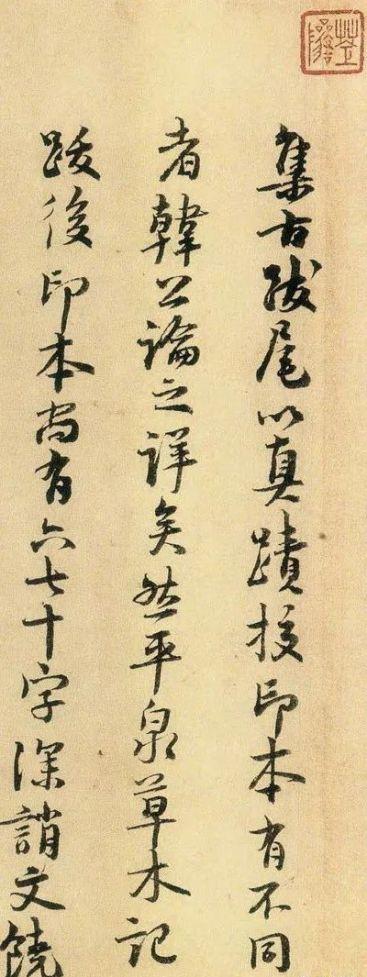 集古跋尾以真蹟挍印本有不同
者韓公論之詳矣然平泉草木記
跋後印本尚有六七十字深誚文饒